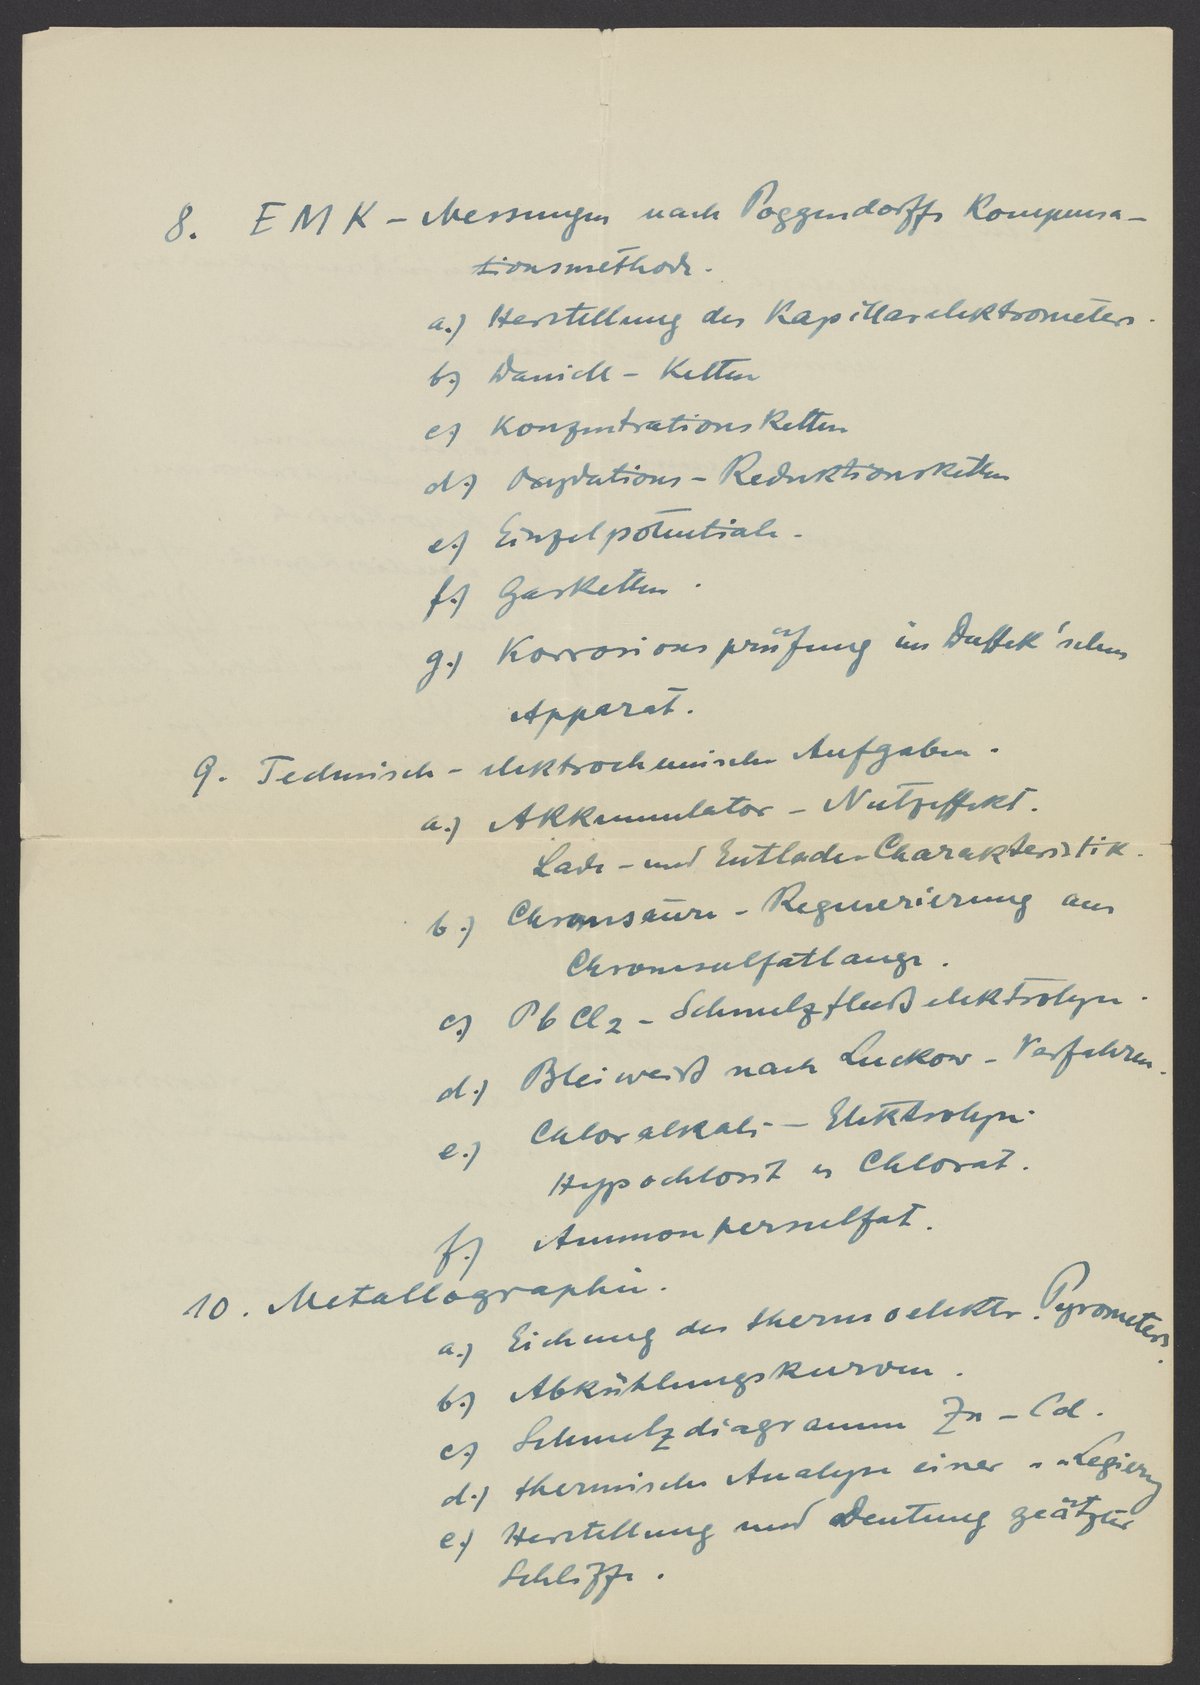 8. EMK - Messungen nach Poggendorffs Kompensa-
tionsmethode.
a.) Herstellung des Kapillarelektrometers.
b.) Daniell - Ketten
c.) Konzentrationsketten
d.) Oxydations - Reduktionsketten
e.) Einzelpotentiale.
f.) Gasketten.
g.) Korrosionsprüfung im Duffek'schen
Apparat.
9. Technisch - elektrochemische Aufgaben.
a.) Akkumulator - Nutzeffekt.
Lade - und Entlade-Charakteristik.
b.) Chromsäure - Regenerierung aus
Chromsulfatlauge.
c.) PbCl2 - Schmelzflußelektrolyse.
d.) Bleiweiß nach Luckow - Verfahren.
e.) Chloralkali - Elektrolyse
Hypochlorit u Chlorat.
f.) Ammonpersulfat.
10. Metallographie.
a.) Eichung des thermoelektr. Pyrometers.
b.) Abkühlungskurven.
c.) Schmelzdiagramm Zn - Cd.
d.) thermische Analyse einer " " Legierung
e.) Herstellung und Deutung geätzter
Schliffe.